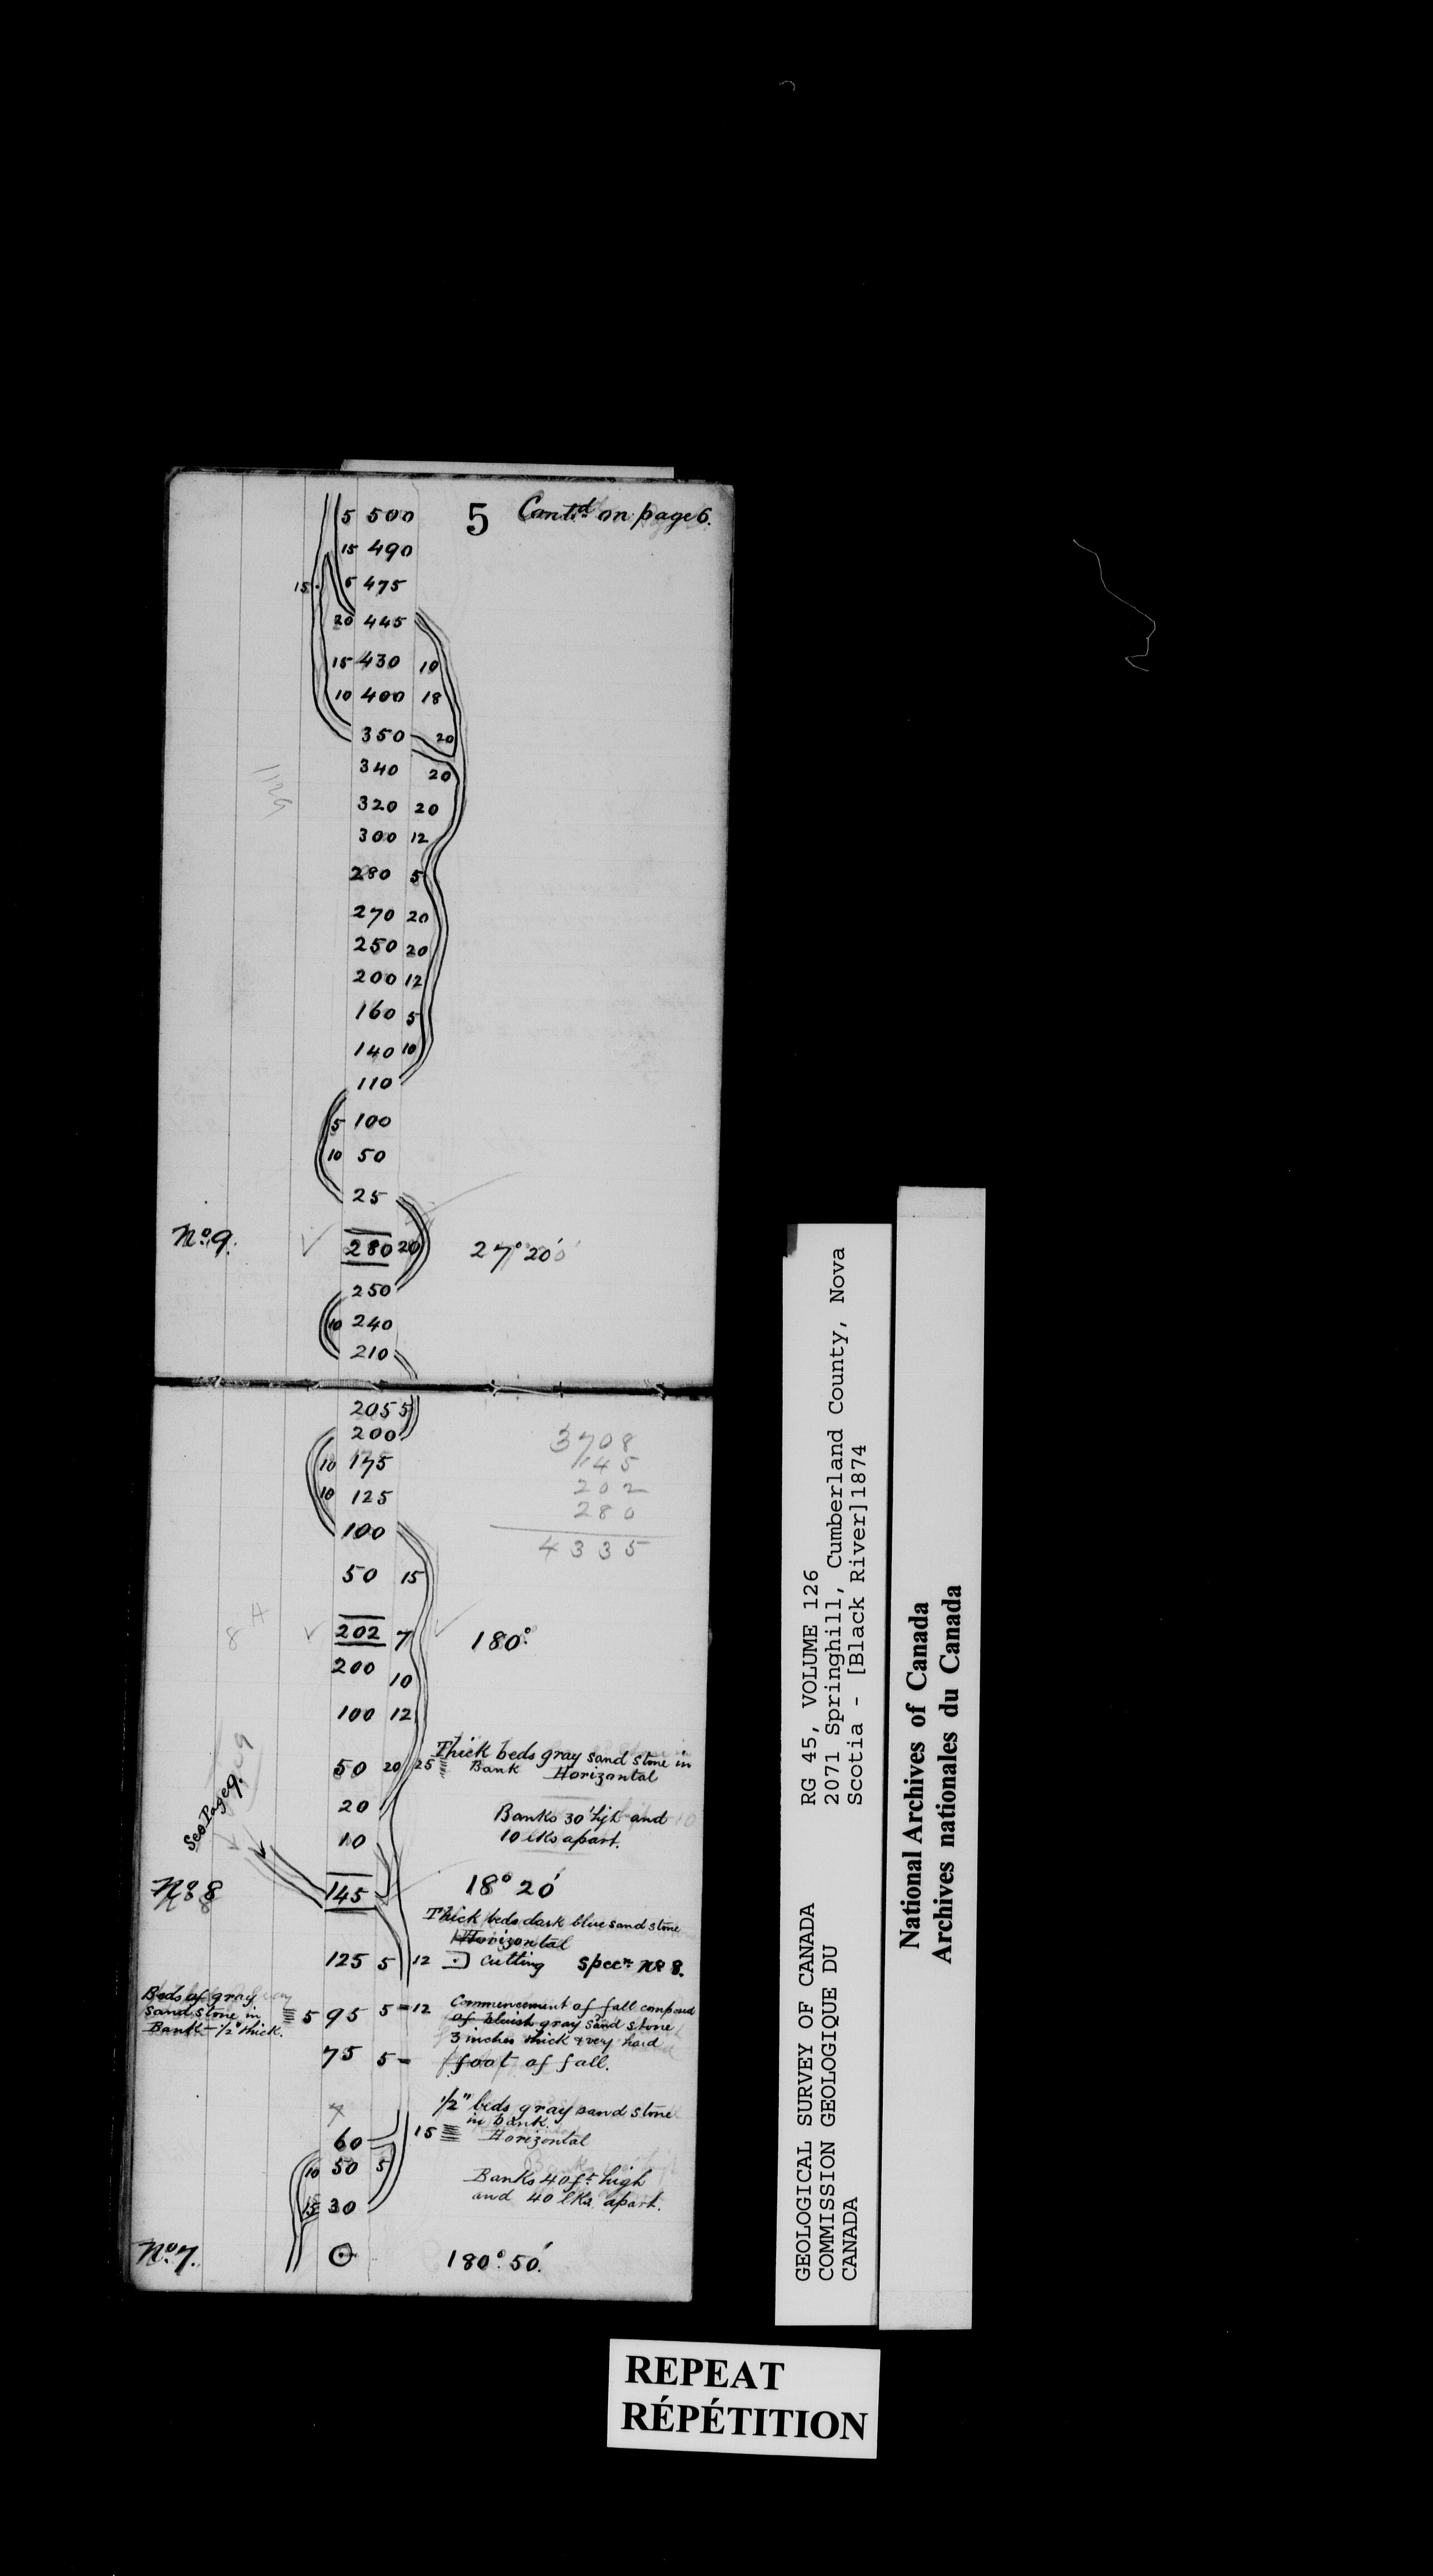 5 500 5 Contd on page 6.
15 490
15 5 475
20 445
15 430 10
10 400 18
350 20
340 20
320 20
300 12
280 5
270 20
250 20
200 12
160 5
140 10
110
5 100
10 50
25
No. 9. 280 20 27° 20'
250
10 240
210
205 5
200
10 175
10 125
100
50 15
3708
145
202
280
4335
202 7 180°.
200 10
100 12
50 20 25 Thick beds gray sand stone in
Bank Horizontal
20
Banks 30' high and
10 lks apart.
10
See Page 9.
No. 8 145 18° 20'
Thick beds dark blue sand stone
Horizontal
125 5 12 Cutting Specn. No. 8.
Beds of gray
sand stone in
Bank - 1/2" thick.
5 95 5 12 Commencement of fall composed
of bluish gray sand stone
3 inches thick & very hard
75 5 foot of fall.
1/2" beds gray sand stone
in bank.
60 15 Horizontal
10 50 5
Banks 40 ft. high
and 40 lks. apart.
15 30
No. 7. 180° 50'.
GEOLOGICAL SURVEY OF CANADA
COMMISSION GEOLOGIQUE DU
CANADA
RG 45, VOLUME 126
2071 Springhill, Cumberland County, Nova
Scotia - [Black River]1874
National Archives of Canada
Archives nationales du Canada
REPEAT
RÉPÉTITION